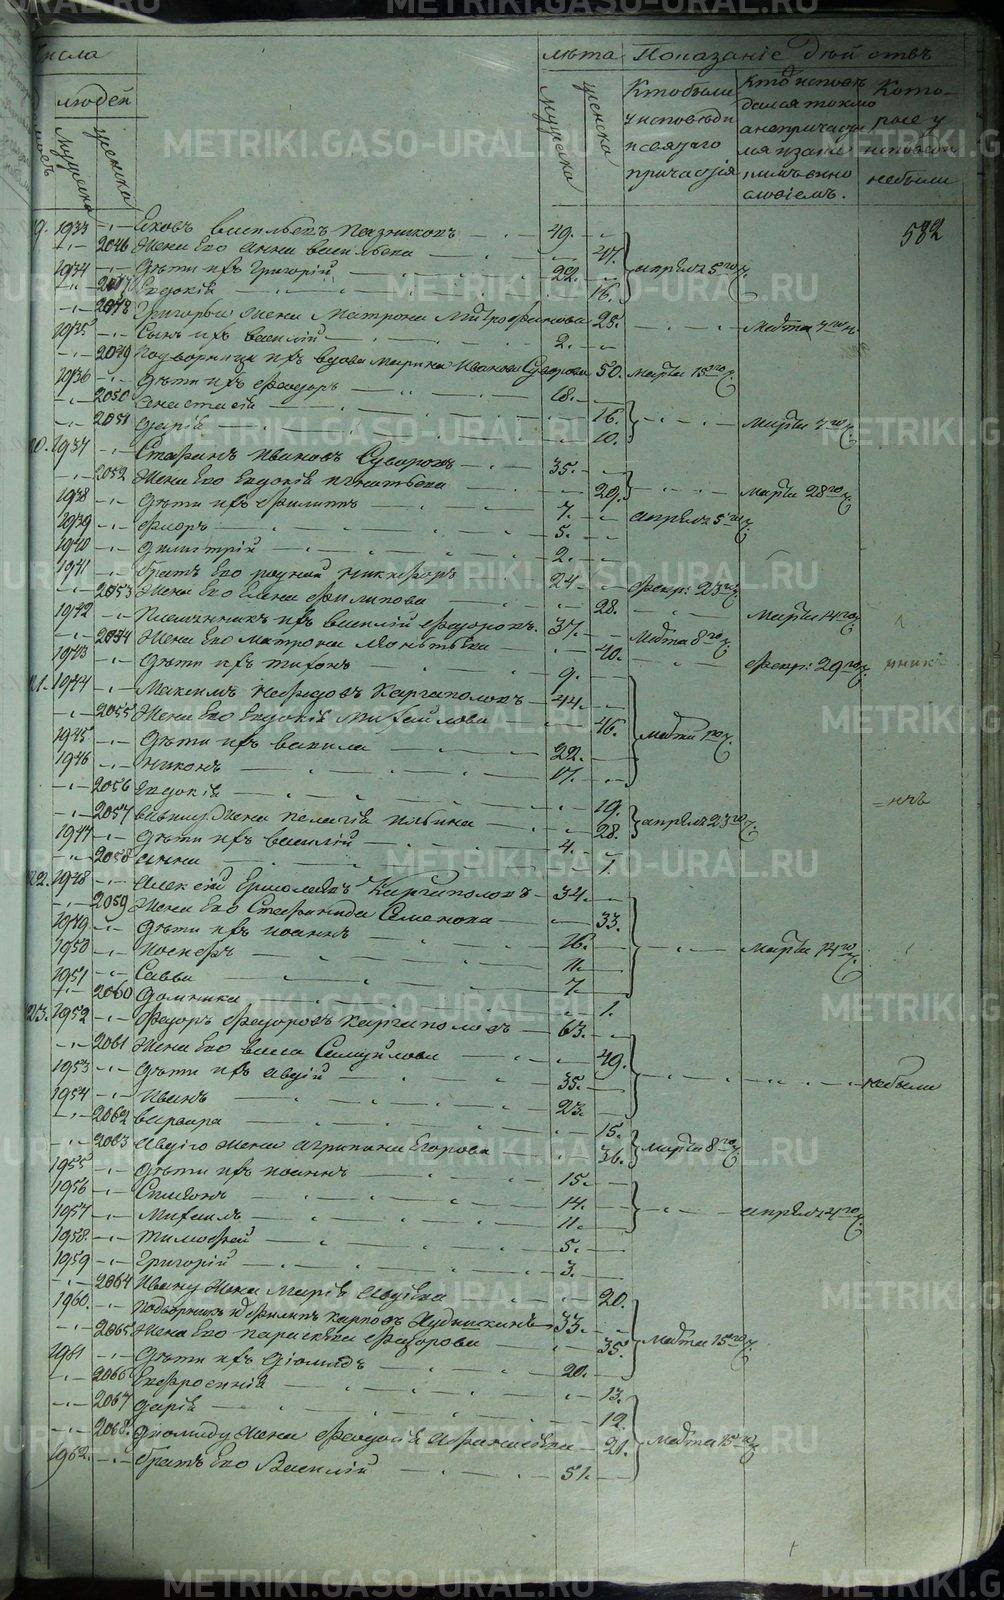 METRIKI.GASO-URAL.RU
числа
лѣта Показаніе Дѣйствъ
людей
мужеска
женска
мужеска
женска
Кто были у исповѣди и святаго причастія
Кто исповѣдался токмо а непричастился и за какимъ виннословіемъ.
Которые у исповѣди небыли
582
19. 1933 Яковъ Васильевъ 49.
2046 Жена Его Анна Васильева 47.
1934 Дѣти ихъ Григорій 22. апреля 5го ч.
2047 Евдокія 16.
2048 Григорья жена Матрона Митрофанова 25. Марта 7го ч.
1935 Сынъ ихъ Василій 2.
2049 Подворница ихъ вдова Марина Иванова Суворова 50. Марта 15го ч.
1936 Дѣти ихъ Феодоръ 18.
2050 Анастасія 16.
2051 Дарія 10. Марта 7го ч.
20. 1937 Стефанъ Ивановъ Суворовъ 35.
2052 Жена Его Евдокія Игнатьева 29. Марта 28го ч.
1938 Дѣти ихъ Филиппъ 7. апреля 5го ч.
1939 Флоръ 5.
1940 Димитрій 2.
1941 Братъ Его родный Никифоръ 24 Февр: 23го ч.
2053 Жена Его Елена Филипова 28. Марта 14го ч.
1942 Племянникъ ихъ Василій Федоровъ. 37. Марта 8го ч.
2054 Жена Его Матрона 40. Февр: 29го ч.
1943 Дѣти ихъ Тихонъ 9.
21. 1944 Максимъ Нефедовъ Каргаполовъ 44.
2055 Жена Его Евдокія Михайлова 46.
1945 Дѣти ихъ Вавила 22.
1946 Никонъ 17.
2056 Евдокія 19.
2057 Вавилу Жена Пелагія Ильина 28. апреля 23го ч.
1947 Дѣти ихъ Василій 4.
2058 Анна 1.
22. 1948 Алексій Ермолаевъ Каргаполовъ 34.
2059 Жена Его Стефанида Семенова 33.
1949 Дѣти ихъ Иоаннъ 16.
1950 Иосифъ 11. Марта 14го ч.
1951 Савва 7.
2060 Домника 1.
23. 1952 Федоръ Федоровъ Каргаполовъ 63.
2061 Жена Его Васса Самуйлова 49.
1953 Дѣти ихъ Авдій 35. небыли
1954 Иванъ 23.
2062 Варвара 15.
2063 Авдіго жена Агрипина Егорова 36. Марта 8го ч.
1955 Дѣти ихъ Иоаннъ 15.
1956 Симеонъ 14.
1957 Михаилъ 11. апреля 4го ч.
1958. Тимофей 5.
1959 Григорій 3.
2064 Ивану Жена Марія Авдіева 20.
1960. Подворникъ Филипъ Карповъ 33.
2065 Жена Его Параскева Федорова 35. Марта 15го ч.
1961 Дѣти ихъ Діомидъ 20.
2066 Евфросинія 13.
2067 Дарія 12.
2068. Диомиду Жена Феодосія Афанасіева 21. Марта 15го ч.
1962. Братъ Его Василій 51.